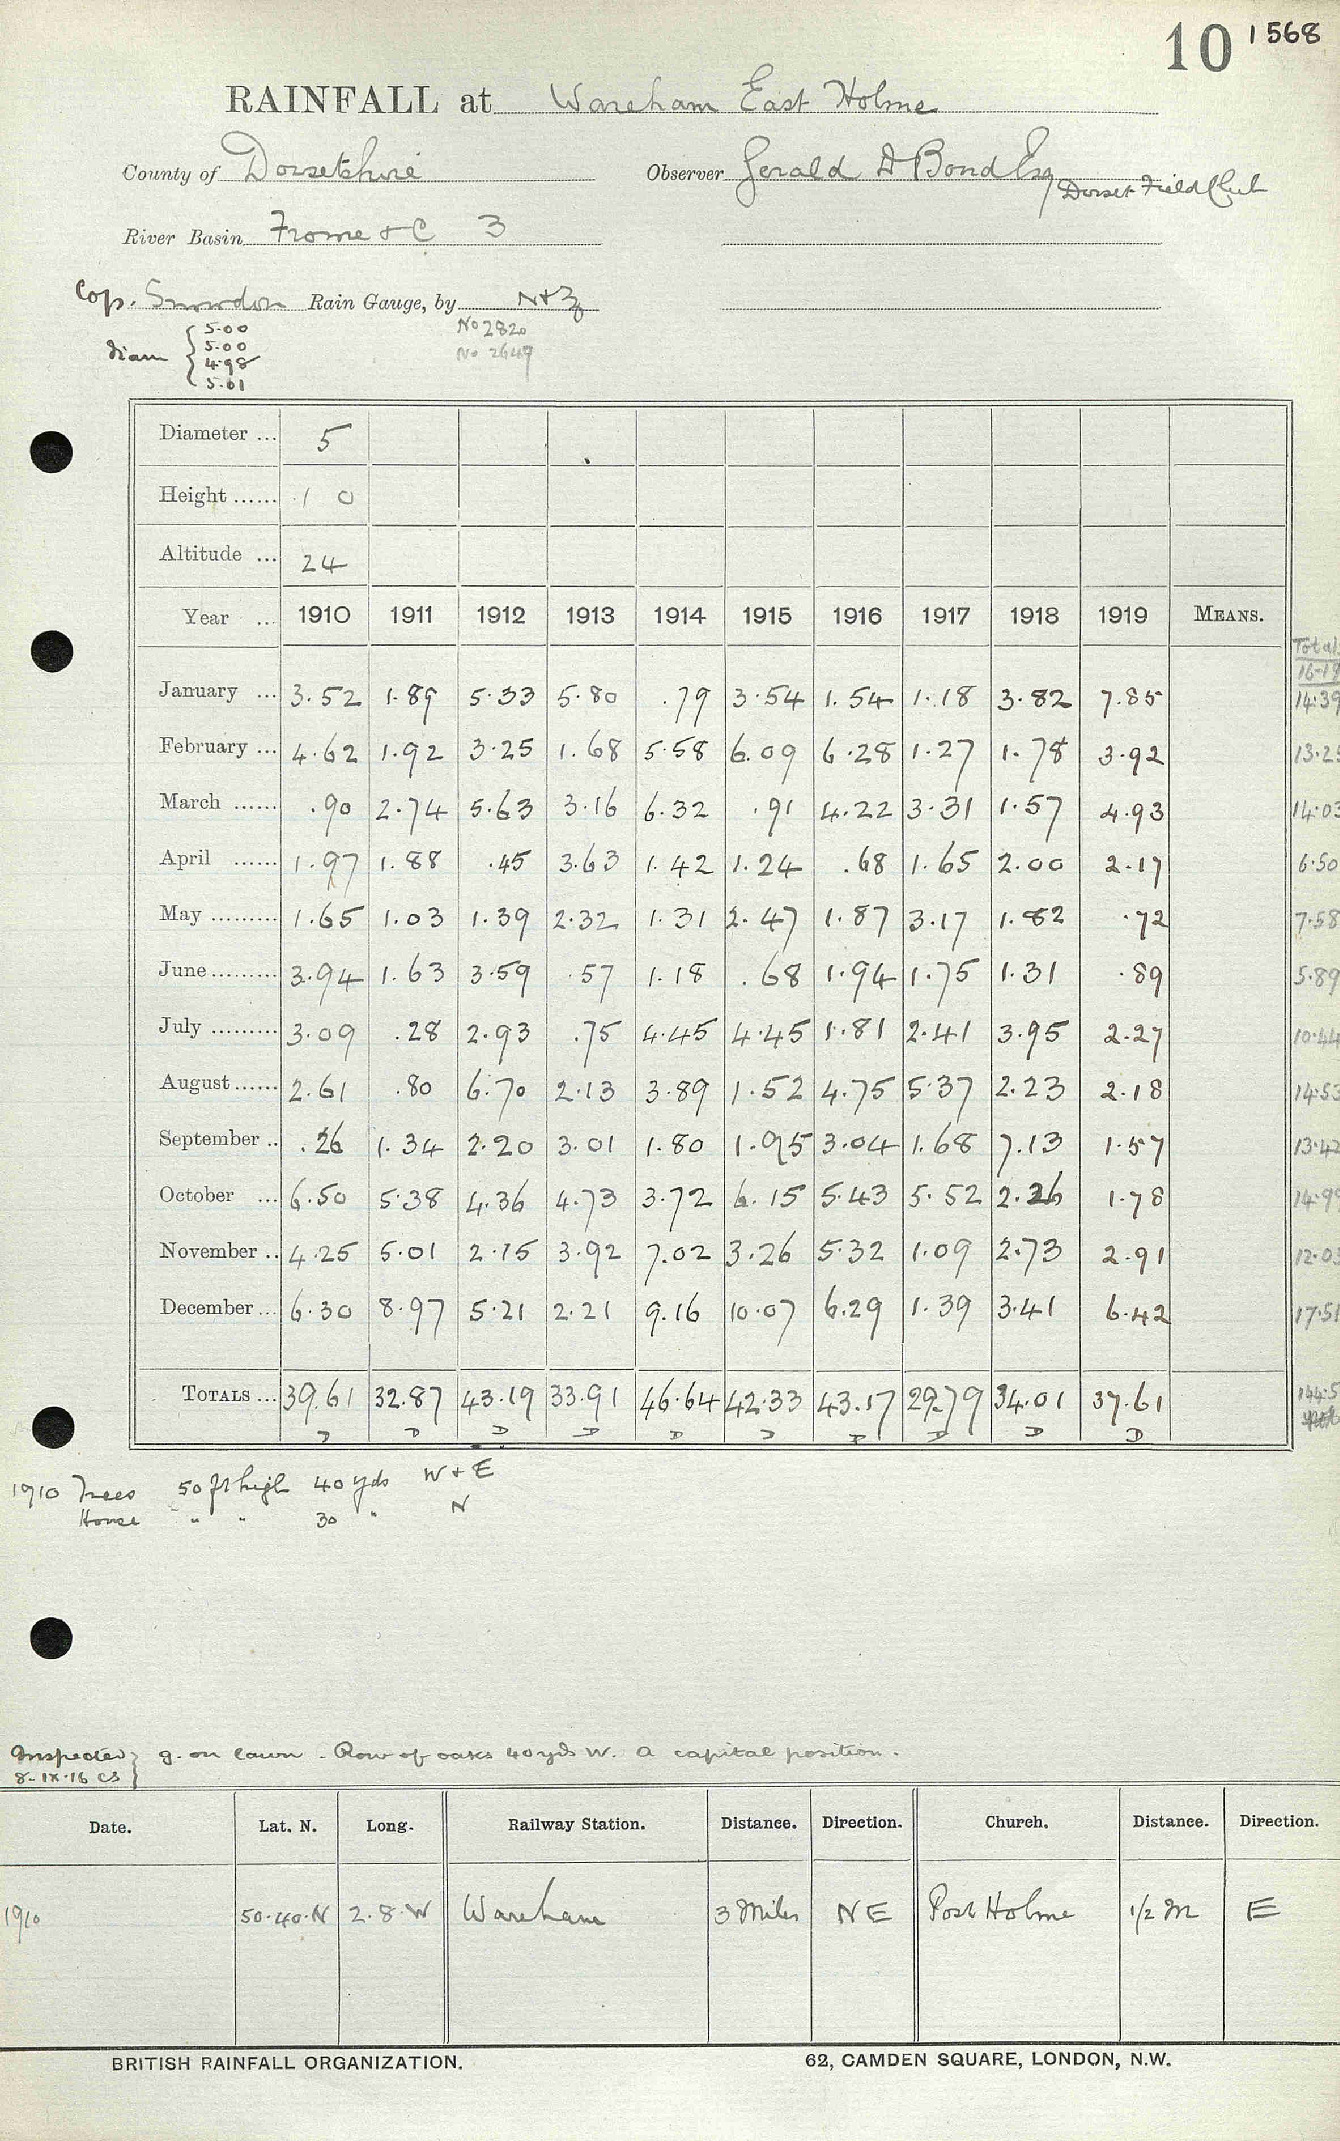 10 1568
RAINFALL at Wareham East Holme
County of Dorsetshire Observer Gerald D Bond Esq Dorset Field Club
River Basin Frome & C 3
Cop. Snowdon Rain Gauge, by N+Z
diam { 5.00 No 2820
5.00 No 2647
4.98
5.01
Diameter ... 5
Height ...... 1 0
Altitude ... 24
Year ... 1910 1911 1912 1913 1914 1915 1916 1917 1918 1919 MEANS. Total
16-19
January ... 3.52 1.89 5.33 5.80 .79 3.54 1.54 1.18 3.82 7.85 14.39
February ... 4.62 1.92 3.25 1.68 5.58 6.09 6.28 1.27 1.78 3.92 13.25
March ...... .90 2.74 5.63 3.16 6.32 .91 4.22 3.31 1.57 4.93 14.03
April ...... 1.97 1.88 .45 3.63 1.42 1.24 .68 1.65 2.00 2.17 6.50
May ......... 1.65 1.03 1.39 2.32 1.31 2.47 1.87 3.17 1.82 .72 7.58
June ......... 3.94 1.63 3.59 .57 1.18 .68 1.94 1.75 1.31 .89 5.89
July ......... 3.09 .28 2.93 .75 4.45 4.45 1.81 2.41 3.95 2.27 10.44
August ...... 2.61 .80 6.70 2.13 3.89 1.52 4.75 5.37 2.23 2.18 14.53
September .. .26 1.34 2.20 3.01 1.80 1.95 3.04 1.68 7.13 1.57 13.42
October ... 6.50 5.38 4.36 4.73 3.72 6.15 5.43 5.52 2.26 1.78 14.99
November .. 4.25 5.01 2.15 3.92 7.02 3.26 5.32 1.09 2.73 2.91 12.05
December ... 6.30 8.97 5.21 2.21 9.16 10.07 6.29 1.39 3.41 6.42 17.51
TOTALS ... 39.61 32.87 43.19 33.91 46.64 42.33 43.17 29.79 34.01 37.61 144.5
D D D D D D D D D D
1910 Trees 50 ft high 40 yds W + E
House " " 30 " N
Inspected } g. on lawn. Row of oaks 40 yds W. A capital position.
8-IX-16 CS
Date. Lat. N. Long. Railway Station. Distance. Direction. Church. Distance. Direction.
1910 50.40.N 2.8.W Wareham 3 Miles NE Holme 1/2 M E
BRITISH RAINFALL ORGANIZATION. 62, CAMDEN SQUARE, LONDON, N.W.